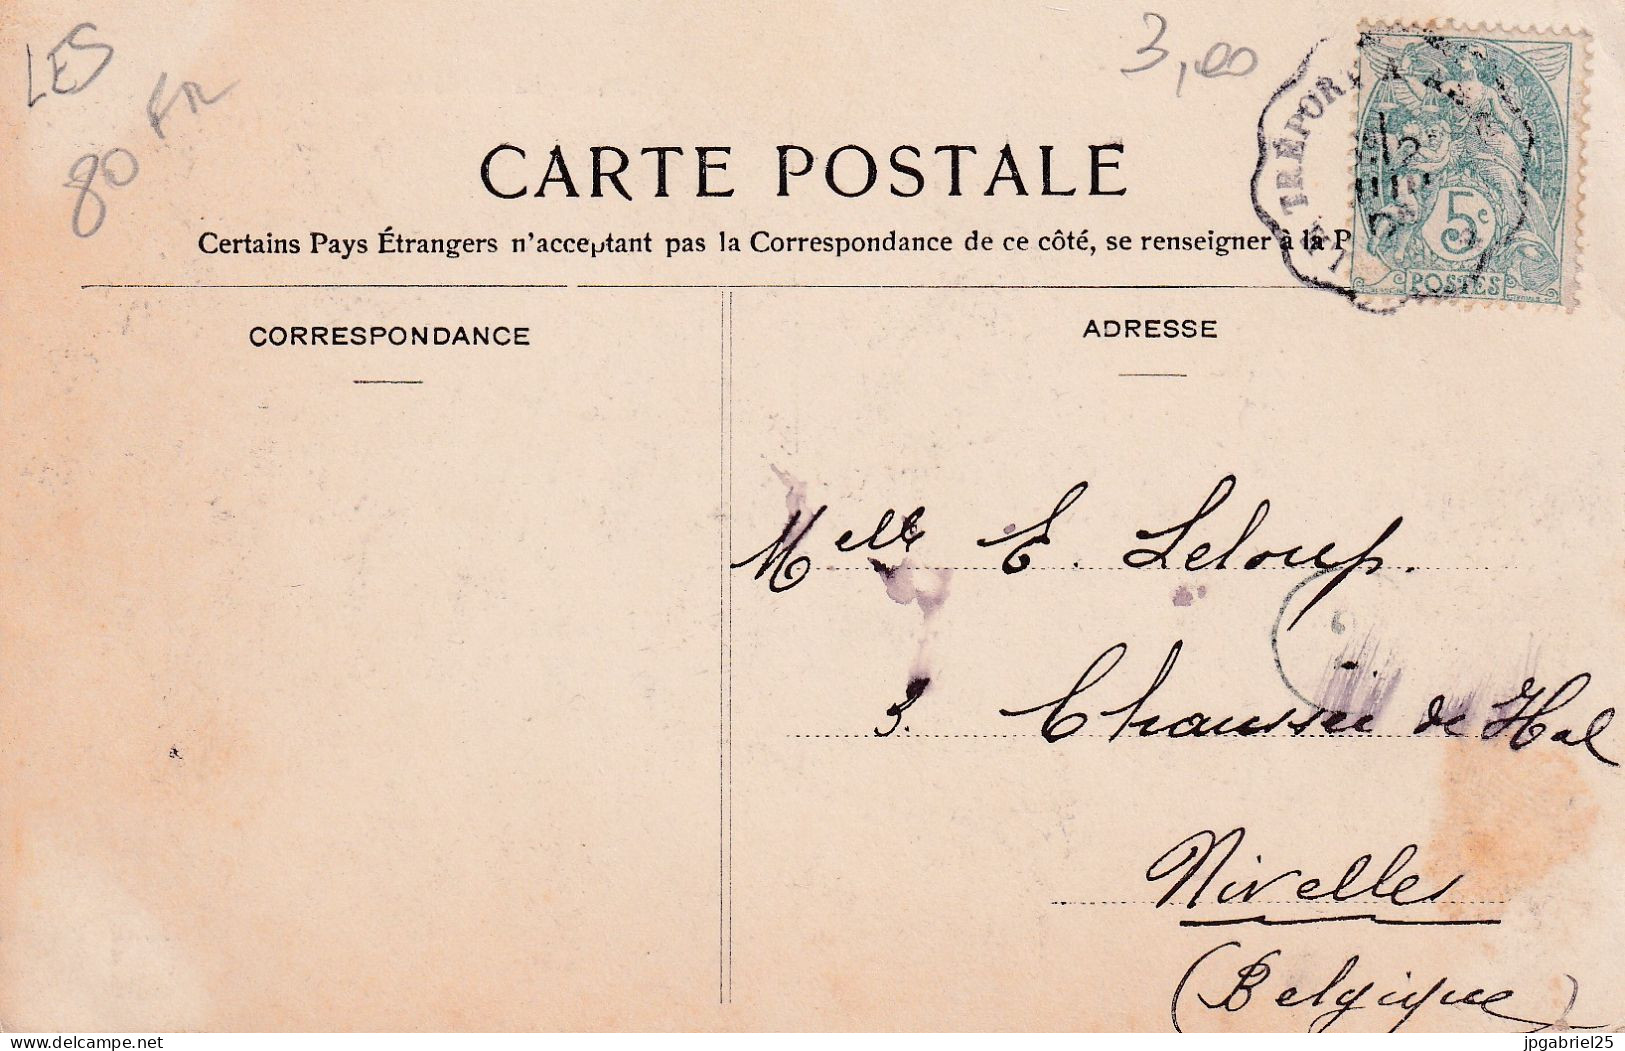 LES
80
3,00
CARTE POSTALE
Certains Pays Étrangers n'acceptant pas la Correspondance de ce côté, se renseigner à la P
LE TRÉPORT A
5c
POSTES
CORRESPONDANCE
ADRESSE
Melle E. Leloup.
3. Chaussée de Hal
Nivelles
(Belgique)
delcampe.net
jpgabriel25